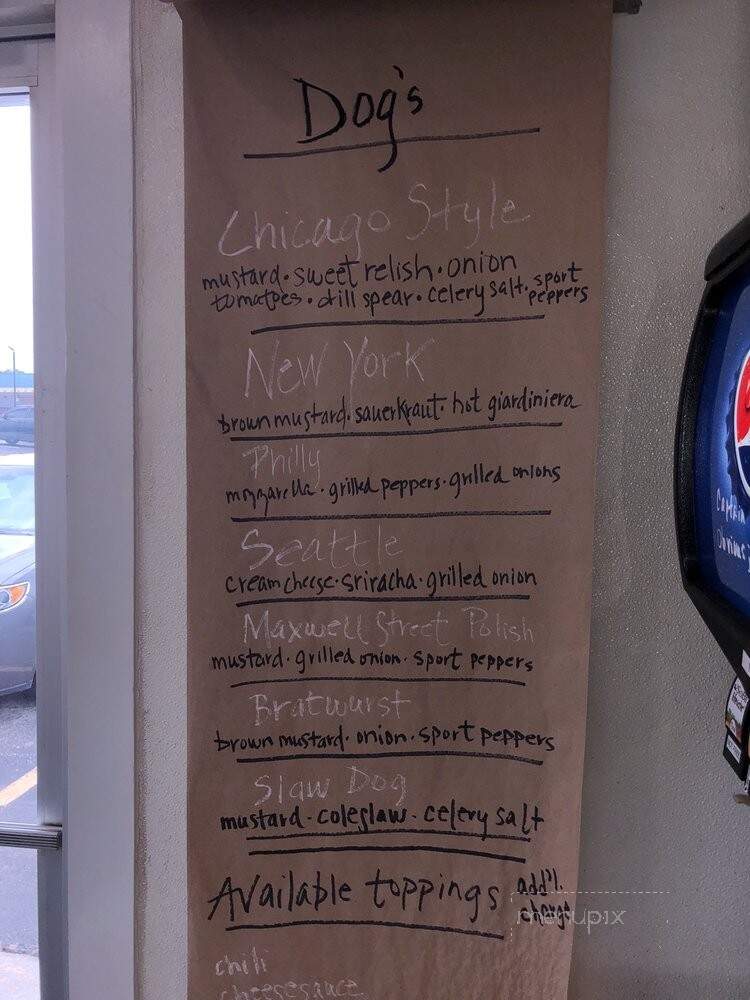 Dog's
Chicago Style
mustard · sweet relish · onion
tomatoes · dill spear · celery salt · sport peppers
New York
brown mustard · sauerkraut · hot giardiniera
Philly
mozzarella · grilled peppers · grilled onions
Seattle
cream cheese · sriracha · grilled onion
Maxwell Street Polish
mustard · grilled onion · sport peppers
Bratwurst
brown mustard · onion · sport peppers
Slaw Dog
mustard · coleslaw · celery salt
Available toppings add'l charge
menupix
chili
cheese sauce
Captain
obvious